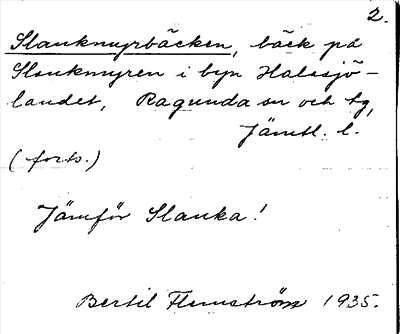 2.
Slankmyrbäcken, bäck på
Slankmyren i byn Halasjö-
landet, Ragunda sn och tg,
Jämtl. l.
(forts.)
Jämför Slanka!
Bertil Flemström 1935.